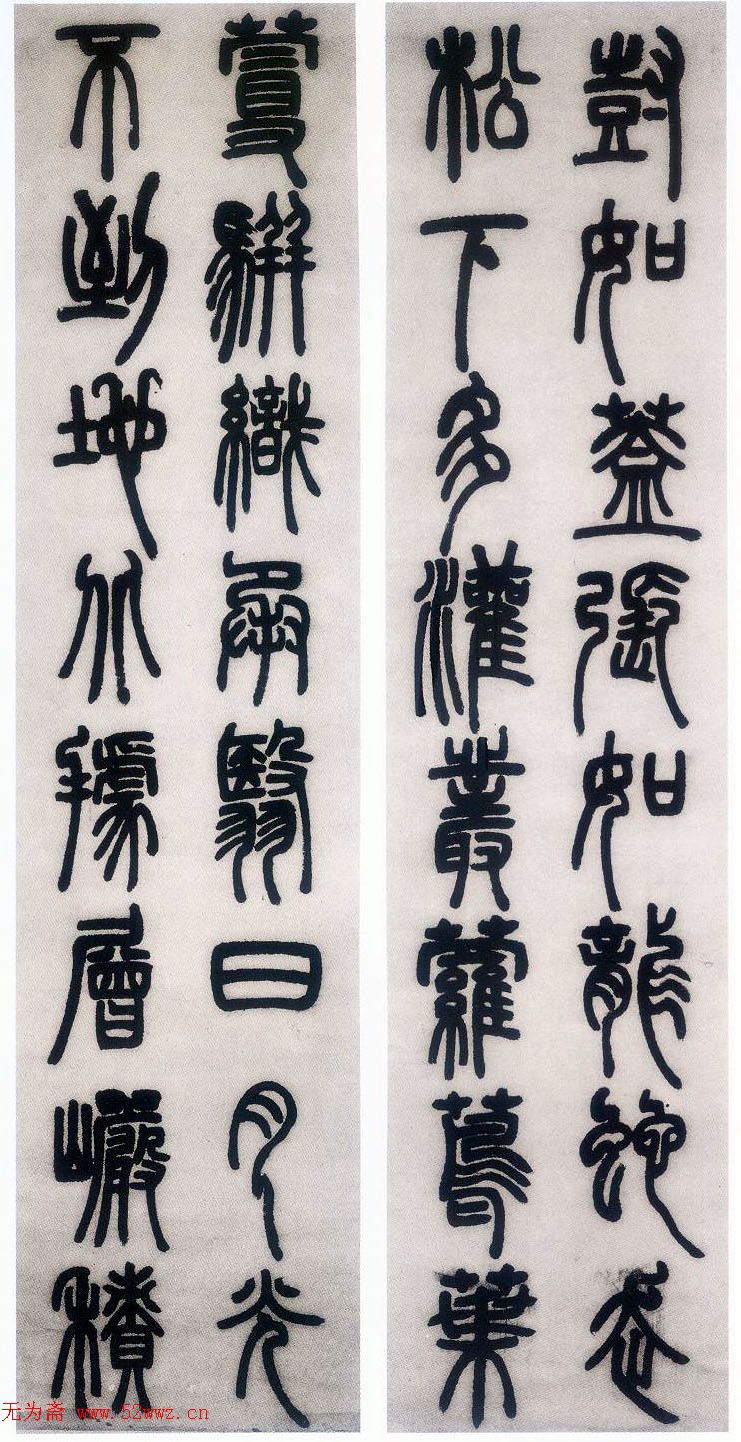 尌如蓋張如龍蛇走
松下多灌叢蘿蔦葉
蔓駢織承翳日月光
不到地北據層巖積
无为斋 www.52wwz.cn